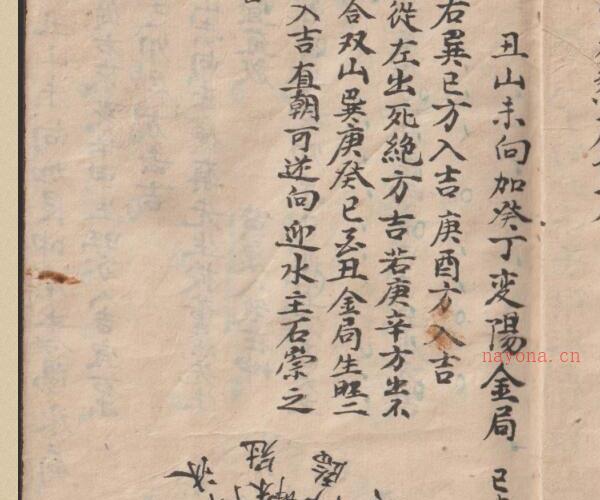 丑山未向加癸丁变陽金局 已
右巽巳方入吉庚酉方入吉
從左出死絶方吉若庚辛方出不
合双山巽庚癸巳酉丑金局生旺二
入吉直朝可逆向迎水主石崇之
冠
nayona.cn